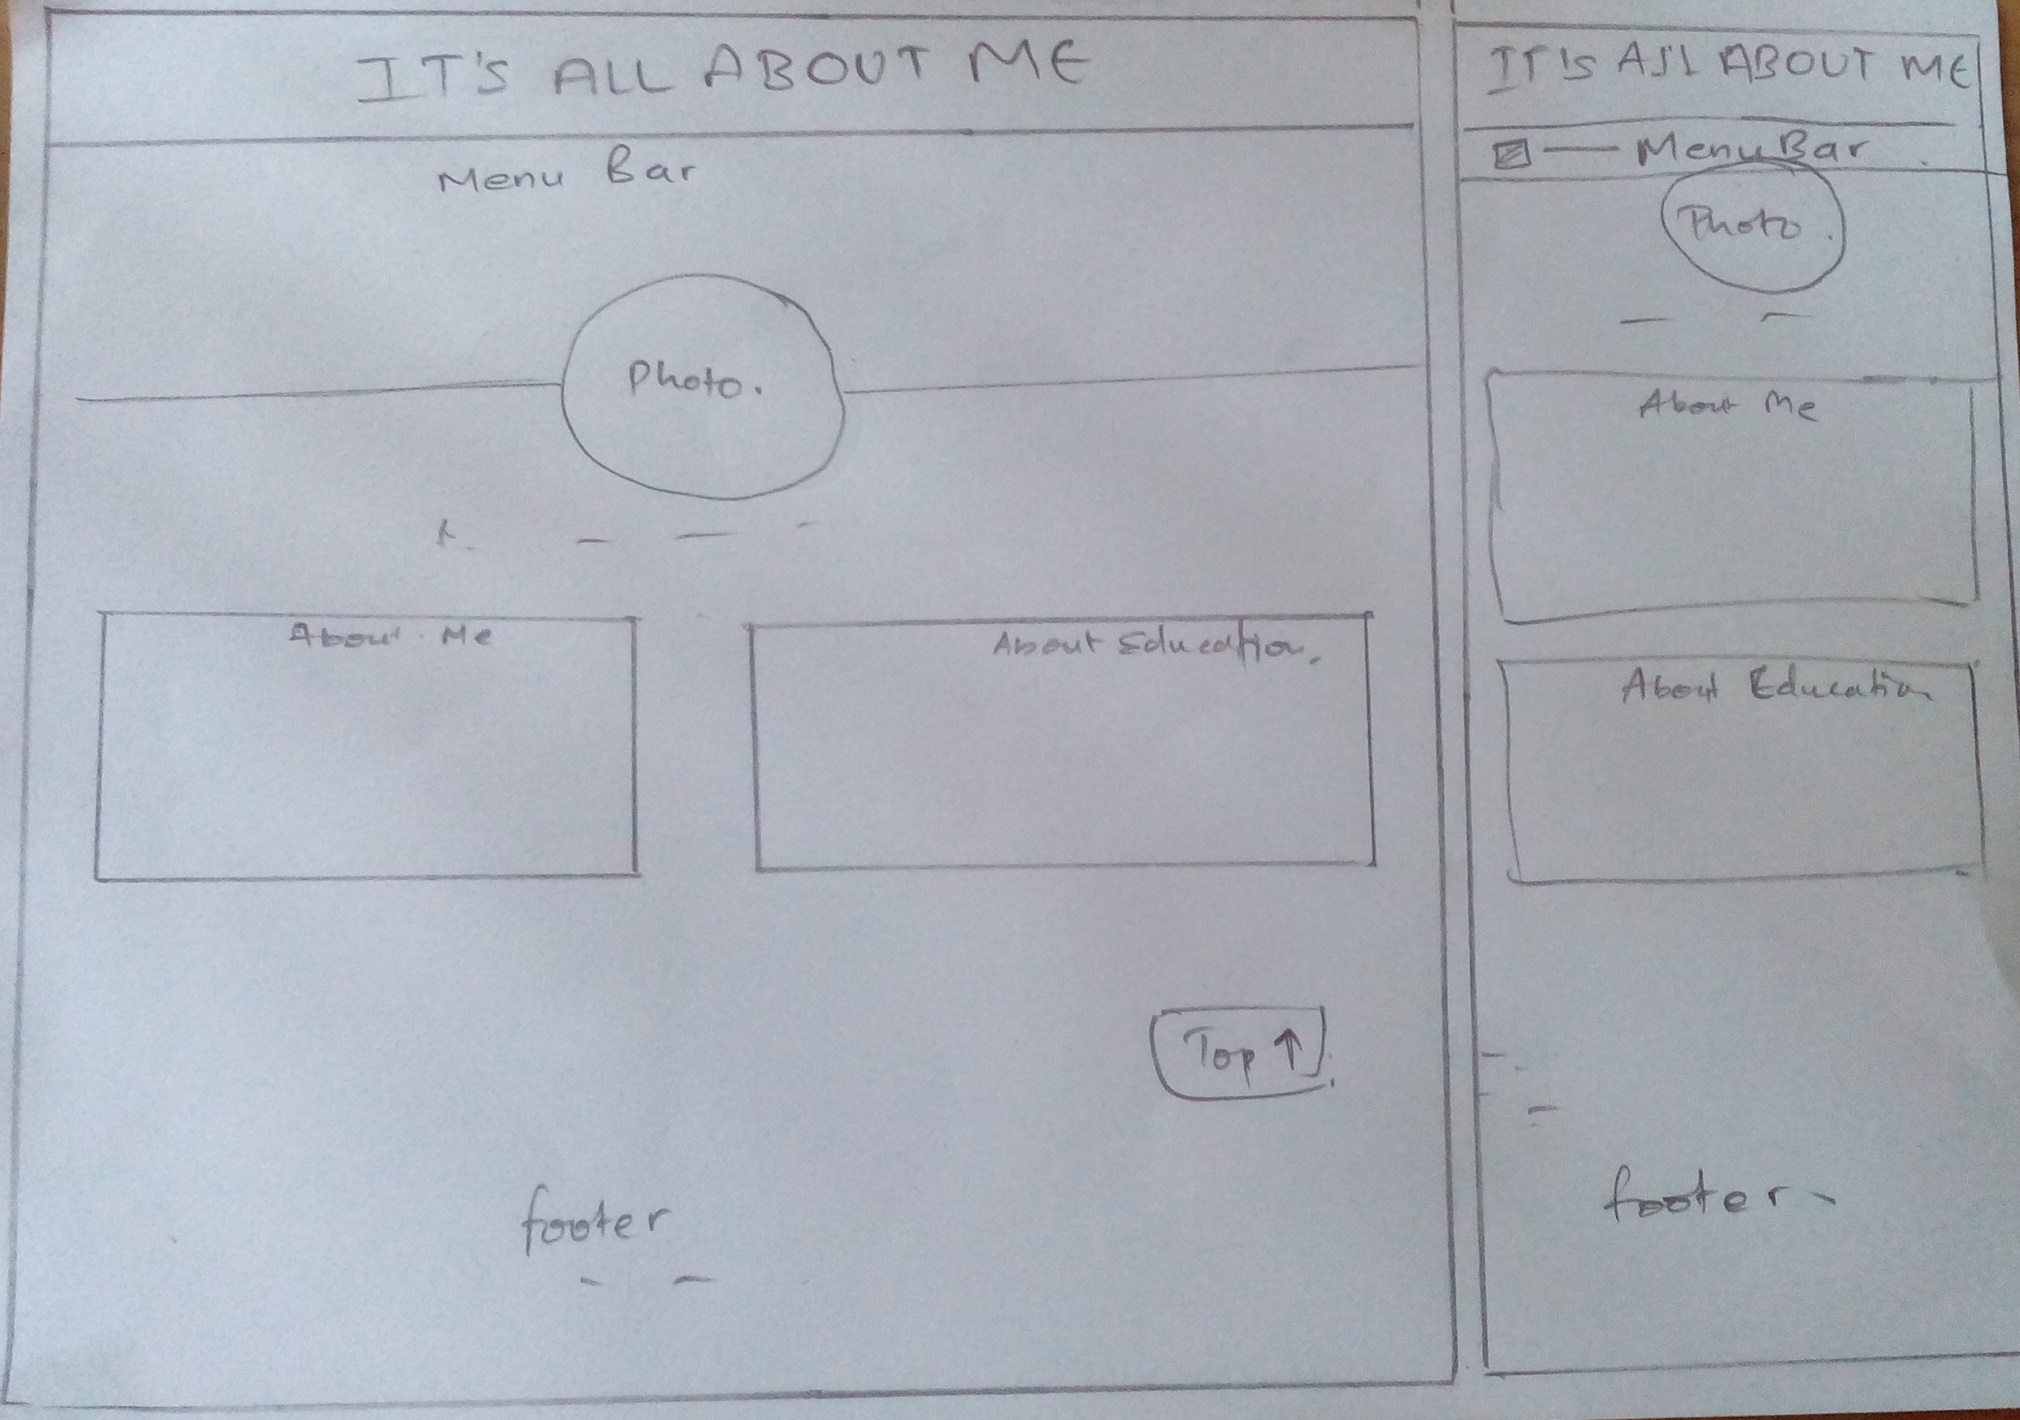 IT'S ALL ABOUT ME
Menu Bar
Photo.
About Me
About Education.
Top ↑
footer
IT'S ALL ABOUT ME
Menu Bar
Photo.
About Me
About Education
footer